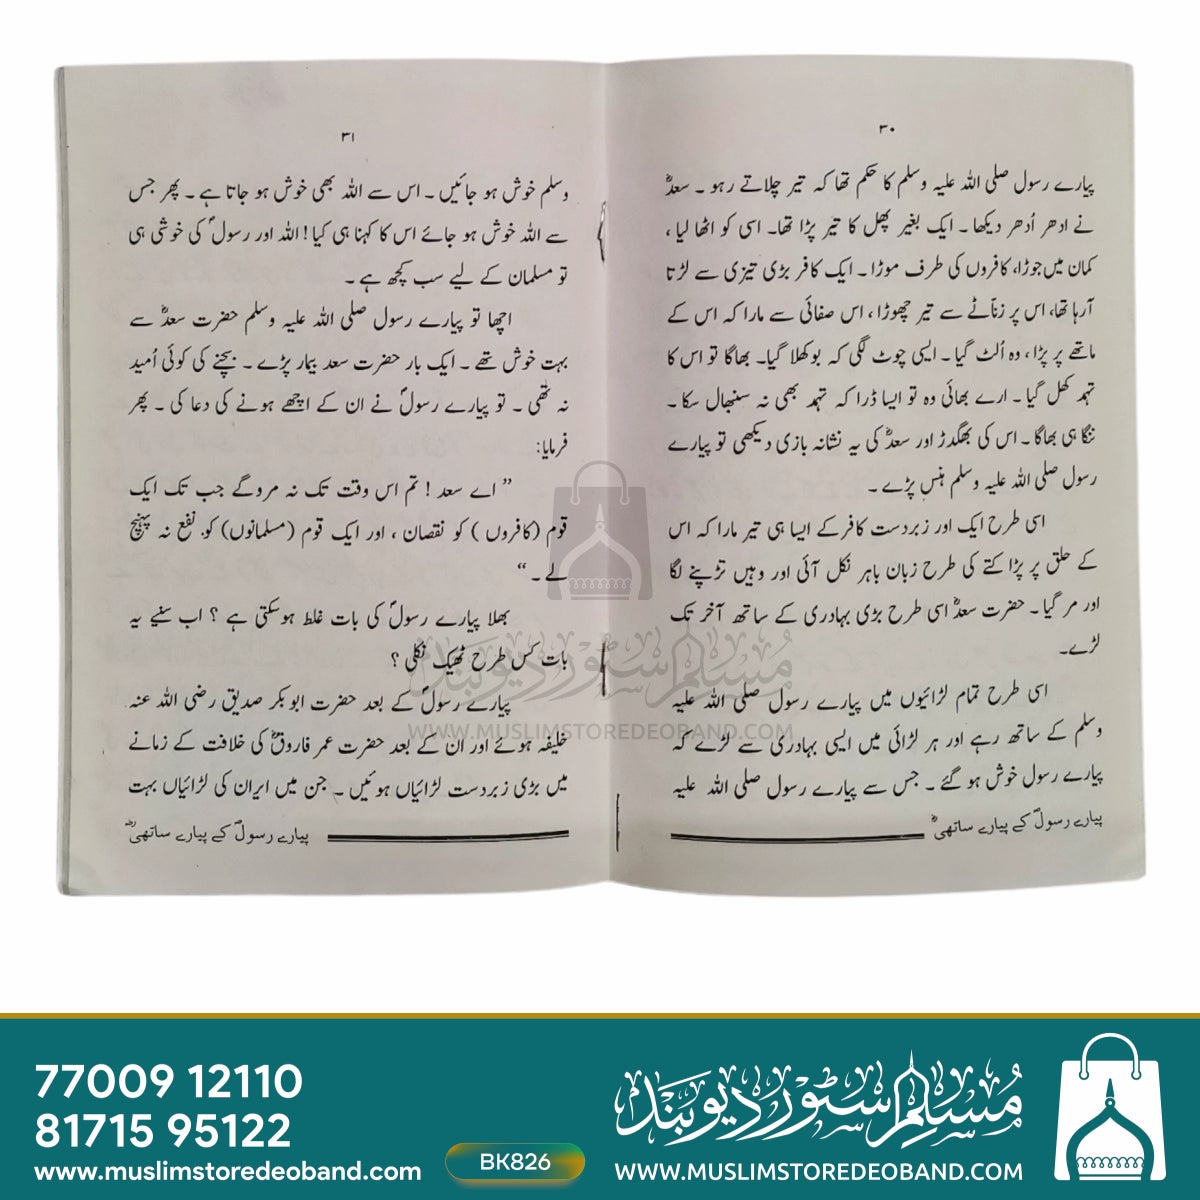 ۳۰
پیارے رسول صلی اللہ علیہ وسلم کا حکم تھا کہ تیر چلاتے رہو ۔ سعدؓ
نے ادھر اُدھر دیکھا ۔ ایک بغیر پھل کا تیر پڑا تھا۔ اسی کو اٹھا لیا ،
کمان میں جوڑا، کافروں کی طرف موڑا ۔ ایک کافر بڑی تیزی سے لڑتا
آرہا تھا، اس پر زناٹے سے تیر چھوڑا ، اس صفائی سے مارا کہ اس کے
ماتھے پر پڑا ، وہ اُلٹ گیا ۔ ایسی چوٹ لگی کہ بوکھلا گیا۔ بھاگا تو اس کا
تہمد کھل گیا ۔ ارے بھائی وہ تو ایسا ڈرا کہ تہمد بھی نہ سنبھال سکا ۔
ننگا ہی بھاگا ۔ اس کی بھگدڑ اور سعدؓ کی یہ نشانہ بازی دیکھی تو پیارے
رسول صلی اللہ علیہ وسلم ہنس پڑے ۔
اسی طرح ایک اور زبردست کافر کے ایسا ہی تیر مارا کہ اس
کے حلق پر پڑا کتے کی طرح زبان باہر نکل آئی اور وہیں تڑپنے لگا
اور مر گیا ۔ حضرت سعدؓ اسی طرح بڑی بہادری کے ساتھ آخر تک
لڑے۔
اسی طرح تمام لڑائیوں میں پیارے رسول صلی اللہ علیہ
وسلم کے ساتھ رہے اور ہر لڑائی میں ایسی بہادری سے لڑے کہ
پیارے رسول خوش ہو گئے ۔ جس سے پیارے رسول صلی اللہ علیہ
پیارے رسولؐ کے پیارے ساتھیؓ
۳۱
وسلم خوش ہو جائیں ۔ اس سے اللہ بھی خوش ہو جاتا ہے ۔ پھر جس
سے اللہ خوش ہو جائے اس کا کہنا ہی کیا ! اللہ اور رسولؐ کی خوشی ہی
تو مسلمان کے لیے سب کچھ ہے ۔
اچھا تو پیارے رسول صلی اللہ علیہ وسلم حضرت سعدؓ سے
بہت خوش تھے ۔ ایک بار حضرت سعد بیمار پڑے ۔ بچنے کی کوئی اُمید
نہ تھی ۔ تو پیارے رسولؐ نے ان کے اچھے ہونے کی دعا کی ۔ پھر
فرمایا:
” اے سعد ! تم اس وقت تک نہ مروگے جب تک ایک
قوم (کافروں ) کو نقصان ، اور ایک قوم (مسلمانوں) کو نفع نہ پہنچ
لے ۔ “
بھلا پیارے رسولؐ کی بات غلط ہوسکتی ہے ؟ اب سنیے یہ
بات کس طرح ٹھیک نکلی ؟
پیارے رسولؐ کے بعد حضرت ابوبکر صدیق رضی اللہ عنہ
خلیفہ ہوئے اور ان کے بعد حضرت عمر فاروقؓ کی خلافت کے زمانے
میں بڑی زبردست لڑائیاں ہوئیں ۔ جن میں ایران کی لڑائیاں بہت
پیارے رسولؐ کے پیارے ساتھیؓ
مسلم سٹور دیوبند
WWW.MUSLIMSTOREDEOBAND.COM
77009 12110
81715 95122
www.muslimstoredeoband.com
BK826
مسلم سٹور دیوبند
WWW.MUSLIMSTOREDEOBAND.COM